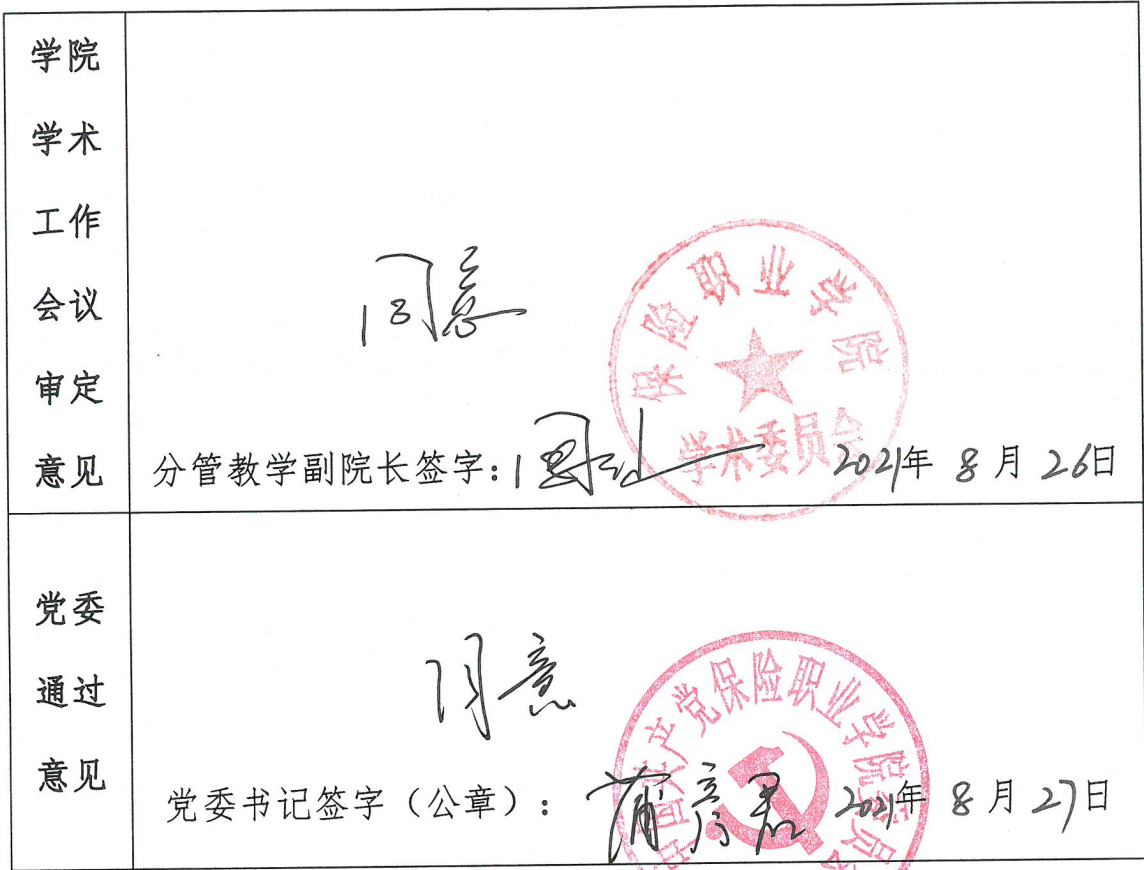 学院
学术
工作
会议
审定
意见
同意
保险职业学院
学术委员会
分管教学副院长签字：
2021年 8月 26日
党委
通过
意见
同意
中国共产党保险职业学院委员会
党委书记签字（公章）：
2021年 8月 27日